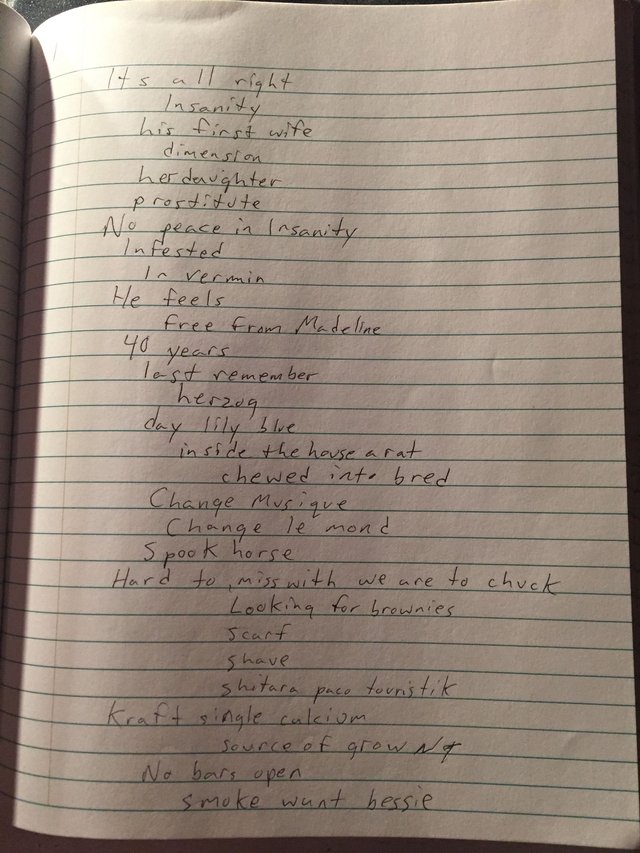 Its all right
Insanity
his first wife
dimension
her daughter
prostitute
No peace in Insanity
Infested
In vermin
He feels
free from Madeline
40 years
last remember
herzog
day lily blue
inside the house a rat
chewed into bred
Change Musique
Change le mond
Spook horse
Hard to, miss with we are to chuck
Looking for brownies
scarf
shave
shitara paco touristik
Kraft single calcium
source of grow
No bars open
smoke wunt bessie